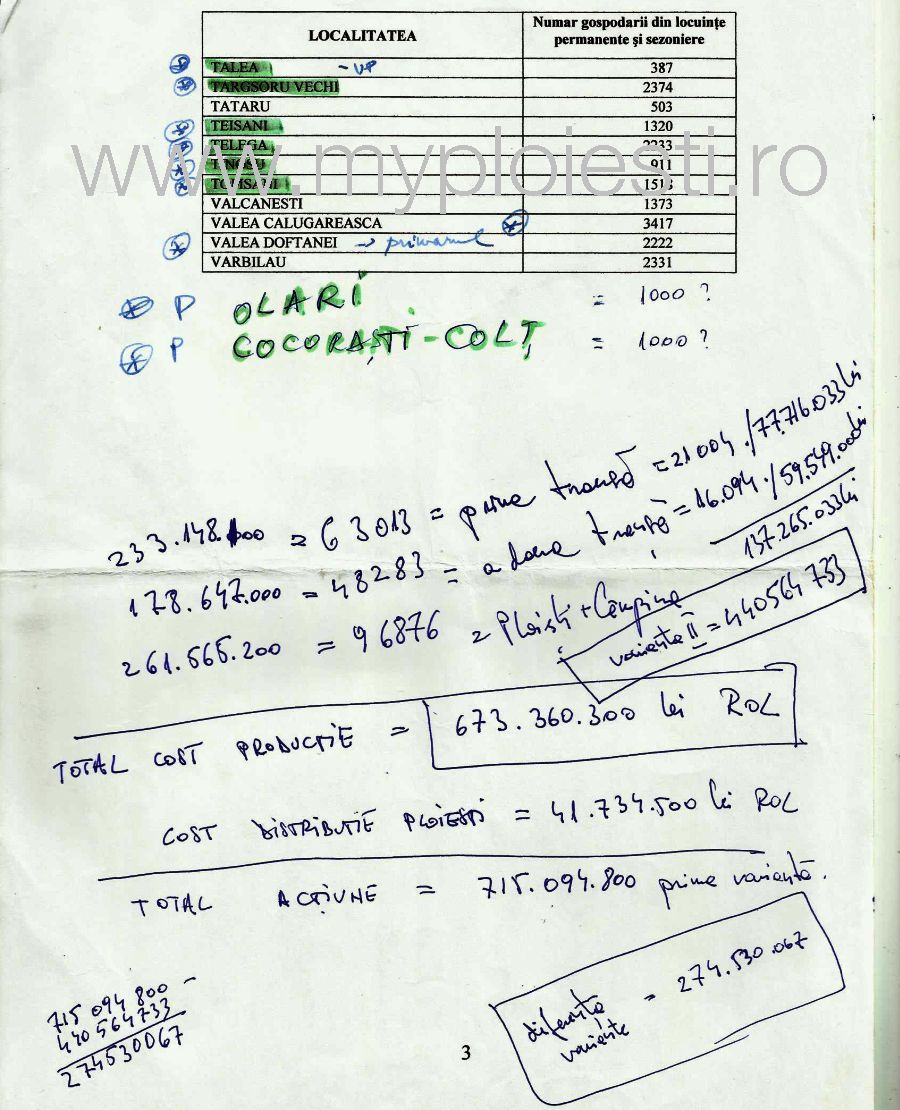 LOCALITATEA Numar gospodarii din locuințe permanente și sezoniere
TALEA - VP 387
TARGSORU VECHI 2374
TATARU 503
TEISANI 1320
TELEGA 2233
TINOSU 911
TOMSANI 1518
www.myploiesti.ro
VALCANESTI 1373
VALEA CALUGAREASCA 3417
VALEA DOFTANEI → primarul 2222
VARBILAU 2331
P OLARI = 1000 ?
P COCORAȘTI - COLȚ = 1000 ?
233.148.100 = 63013 = prima tranșă = 21004 / 77.716.033 lei
178.647.000 = 48283 = a doua tranșă = 16.094 / 59.549.000 lei
137.265.033 lei
261.565.200 = 96876 = Ploiești + Câmpina
varianta II = 440564733
TOTAL COST PRODUCȚIE = 673.360.300 lei ROL
COST DISTRIBUȚIE PLOIEȘTI = 41.734.500 lei ROL
TOTAL ACȚIUNE = 715.094.800 prima variantă.
diferența variante = 274.530.067
715 094 800 -
440 564733
274530067
3